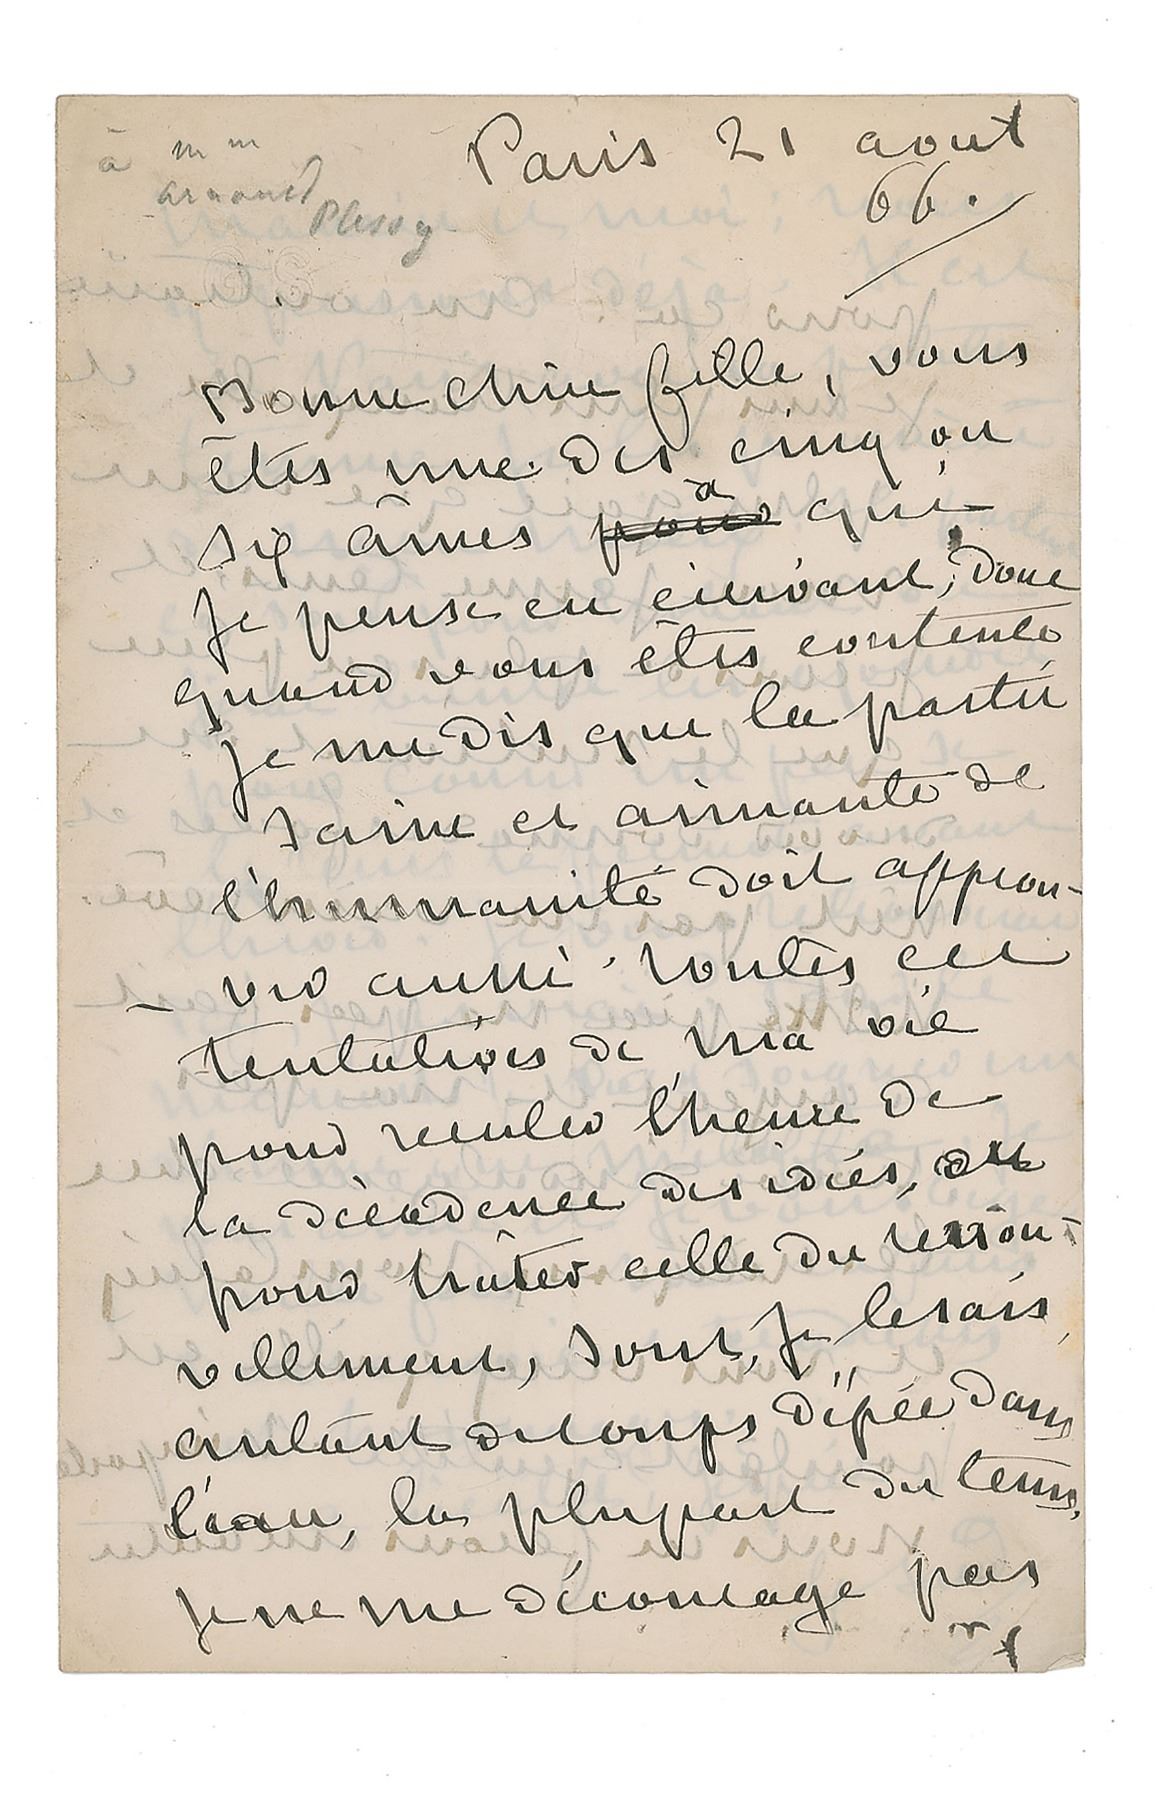 à mme
arnould
Plessy
Paris 21 aout
66.
Bonne chère fille, vous
êtes une des cinq ou
six âmes pour à qui
je pense en écrivant, donc
quand vous êtes contente
je me dis que la partie
saine et aimante de
l'humanité doit approu-
-ver aussi. toutes ces
tentatives de ma vie
pour reculer l'heure de
la décadence des idées, ou
pour hâter celle du renou-
vellement, sont, je le sais,
autant de coups d'épée dans
l'eau, la plupart du tems.
Je ne me décourage pas